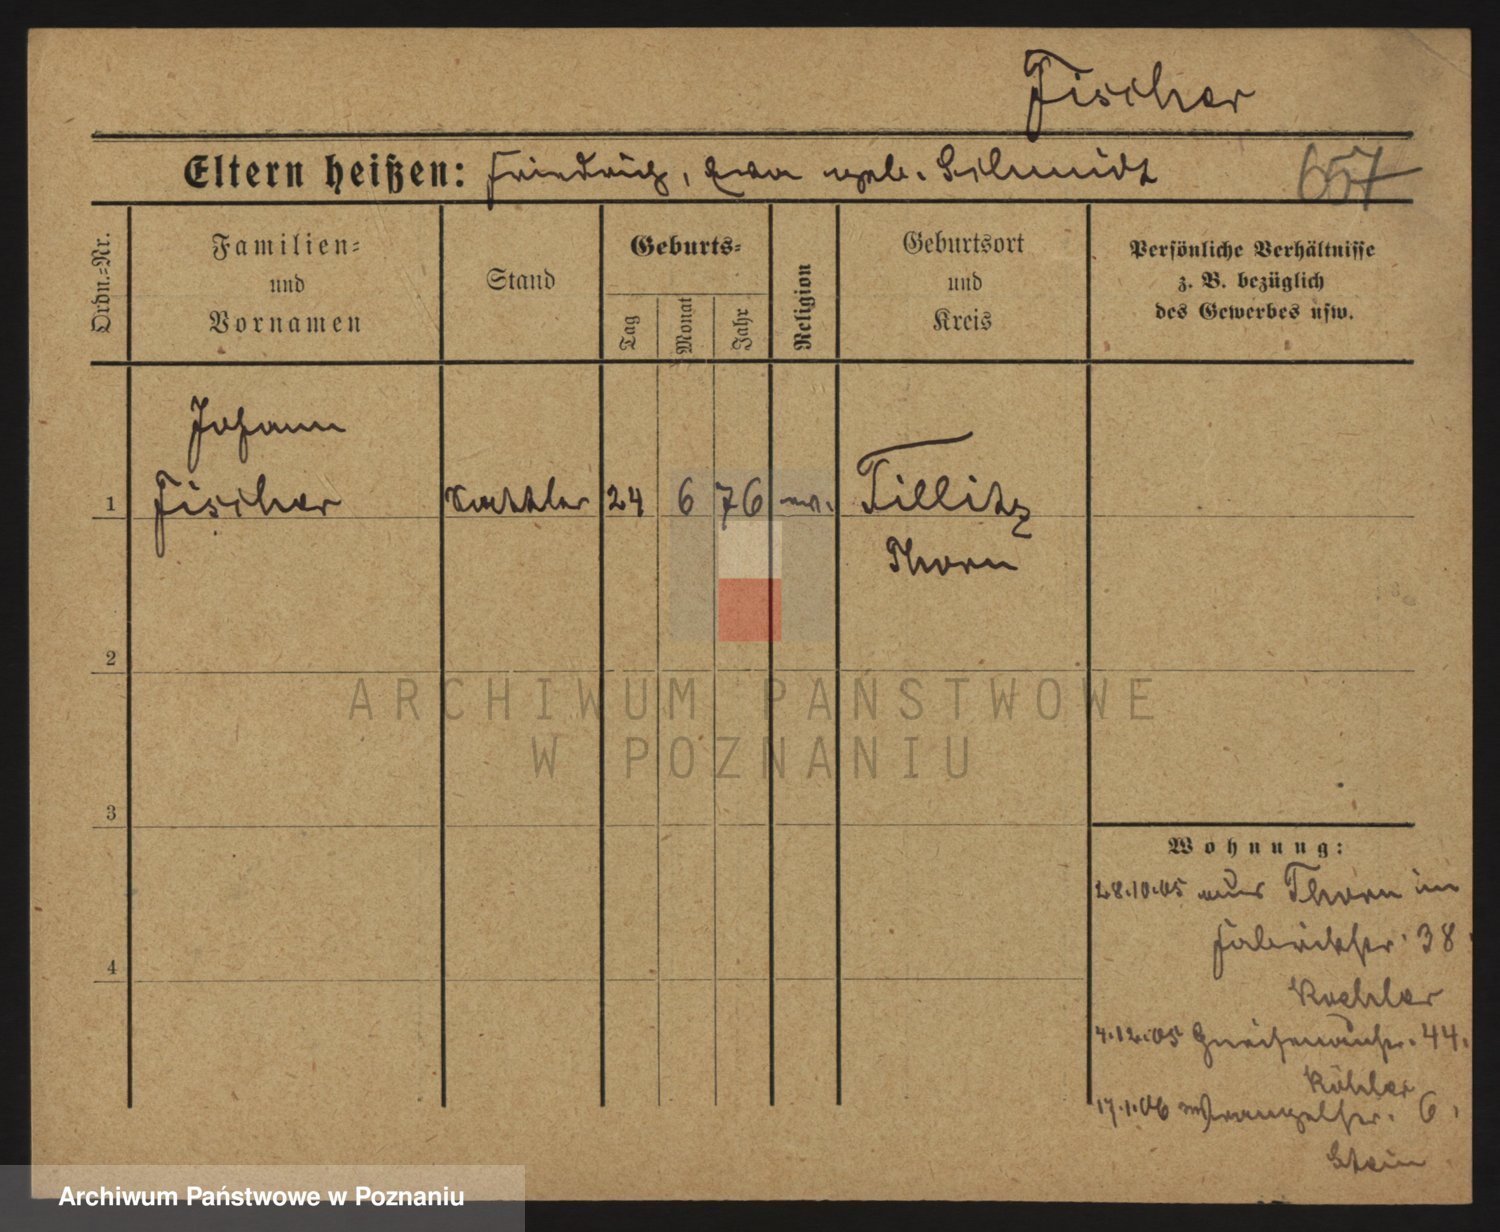 Fischer
Eltern heißen: Friedrich, Eva geb. Schmidt 657
Ordn.=Nr.
Familien=
und
Vornamen
Stand
Geburts=
Tag
Monat
Jahr
Religion
Geburtsort
und
Kreis
Persönliche Verhältnisse
z. B. bezüglich
des Gewerbes usw.
Johann
1 Fischer Sattler 24 6 76 ev. Tillitz
Thorn
2
3
4
Wohnung:
28.10.05 aus Thorn in
Fabrikstr. 38
Koehler
4.12.05 Gneisenaustr. 44.
Köhler
17.1.06 Wrangelstr. 6,
Stein
ARCHIWUM PAŃSTWOWE
W POZNANIU
Archiwum Państwowe w Poznaniu